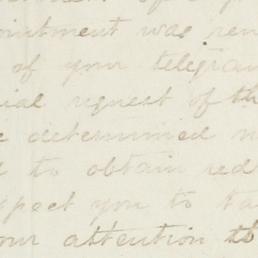 ointment was ren
of your telegra
ial request of th
e determined n
to obtain red
spect you to ta
our attention to